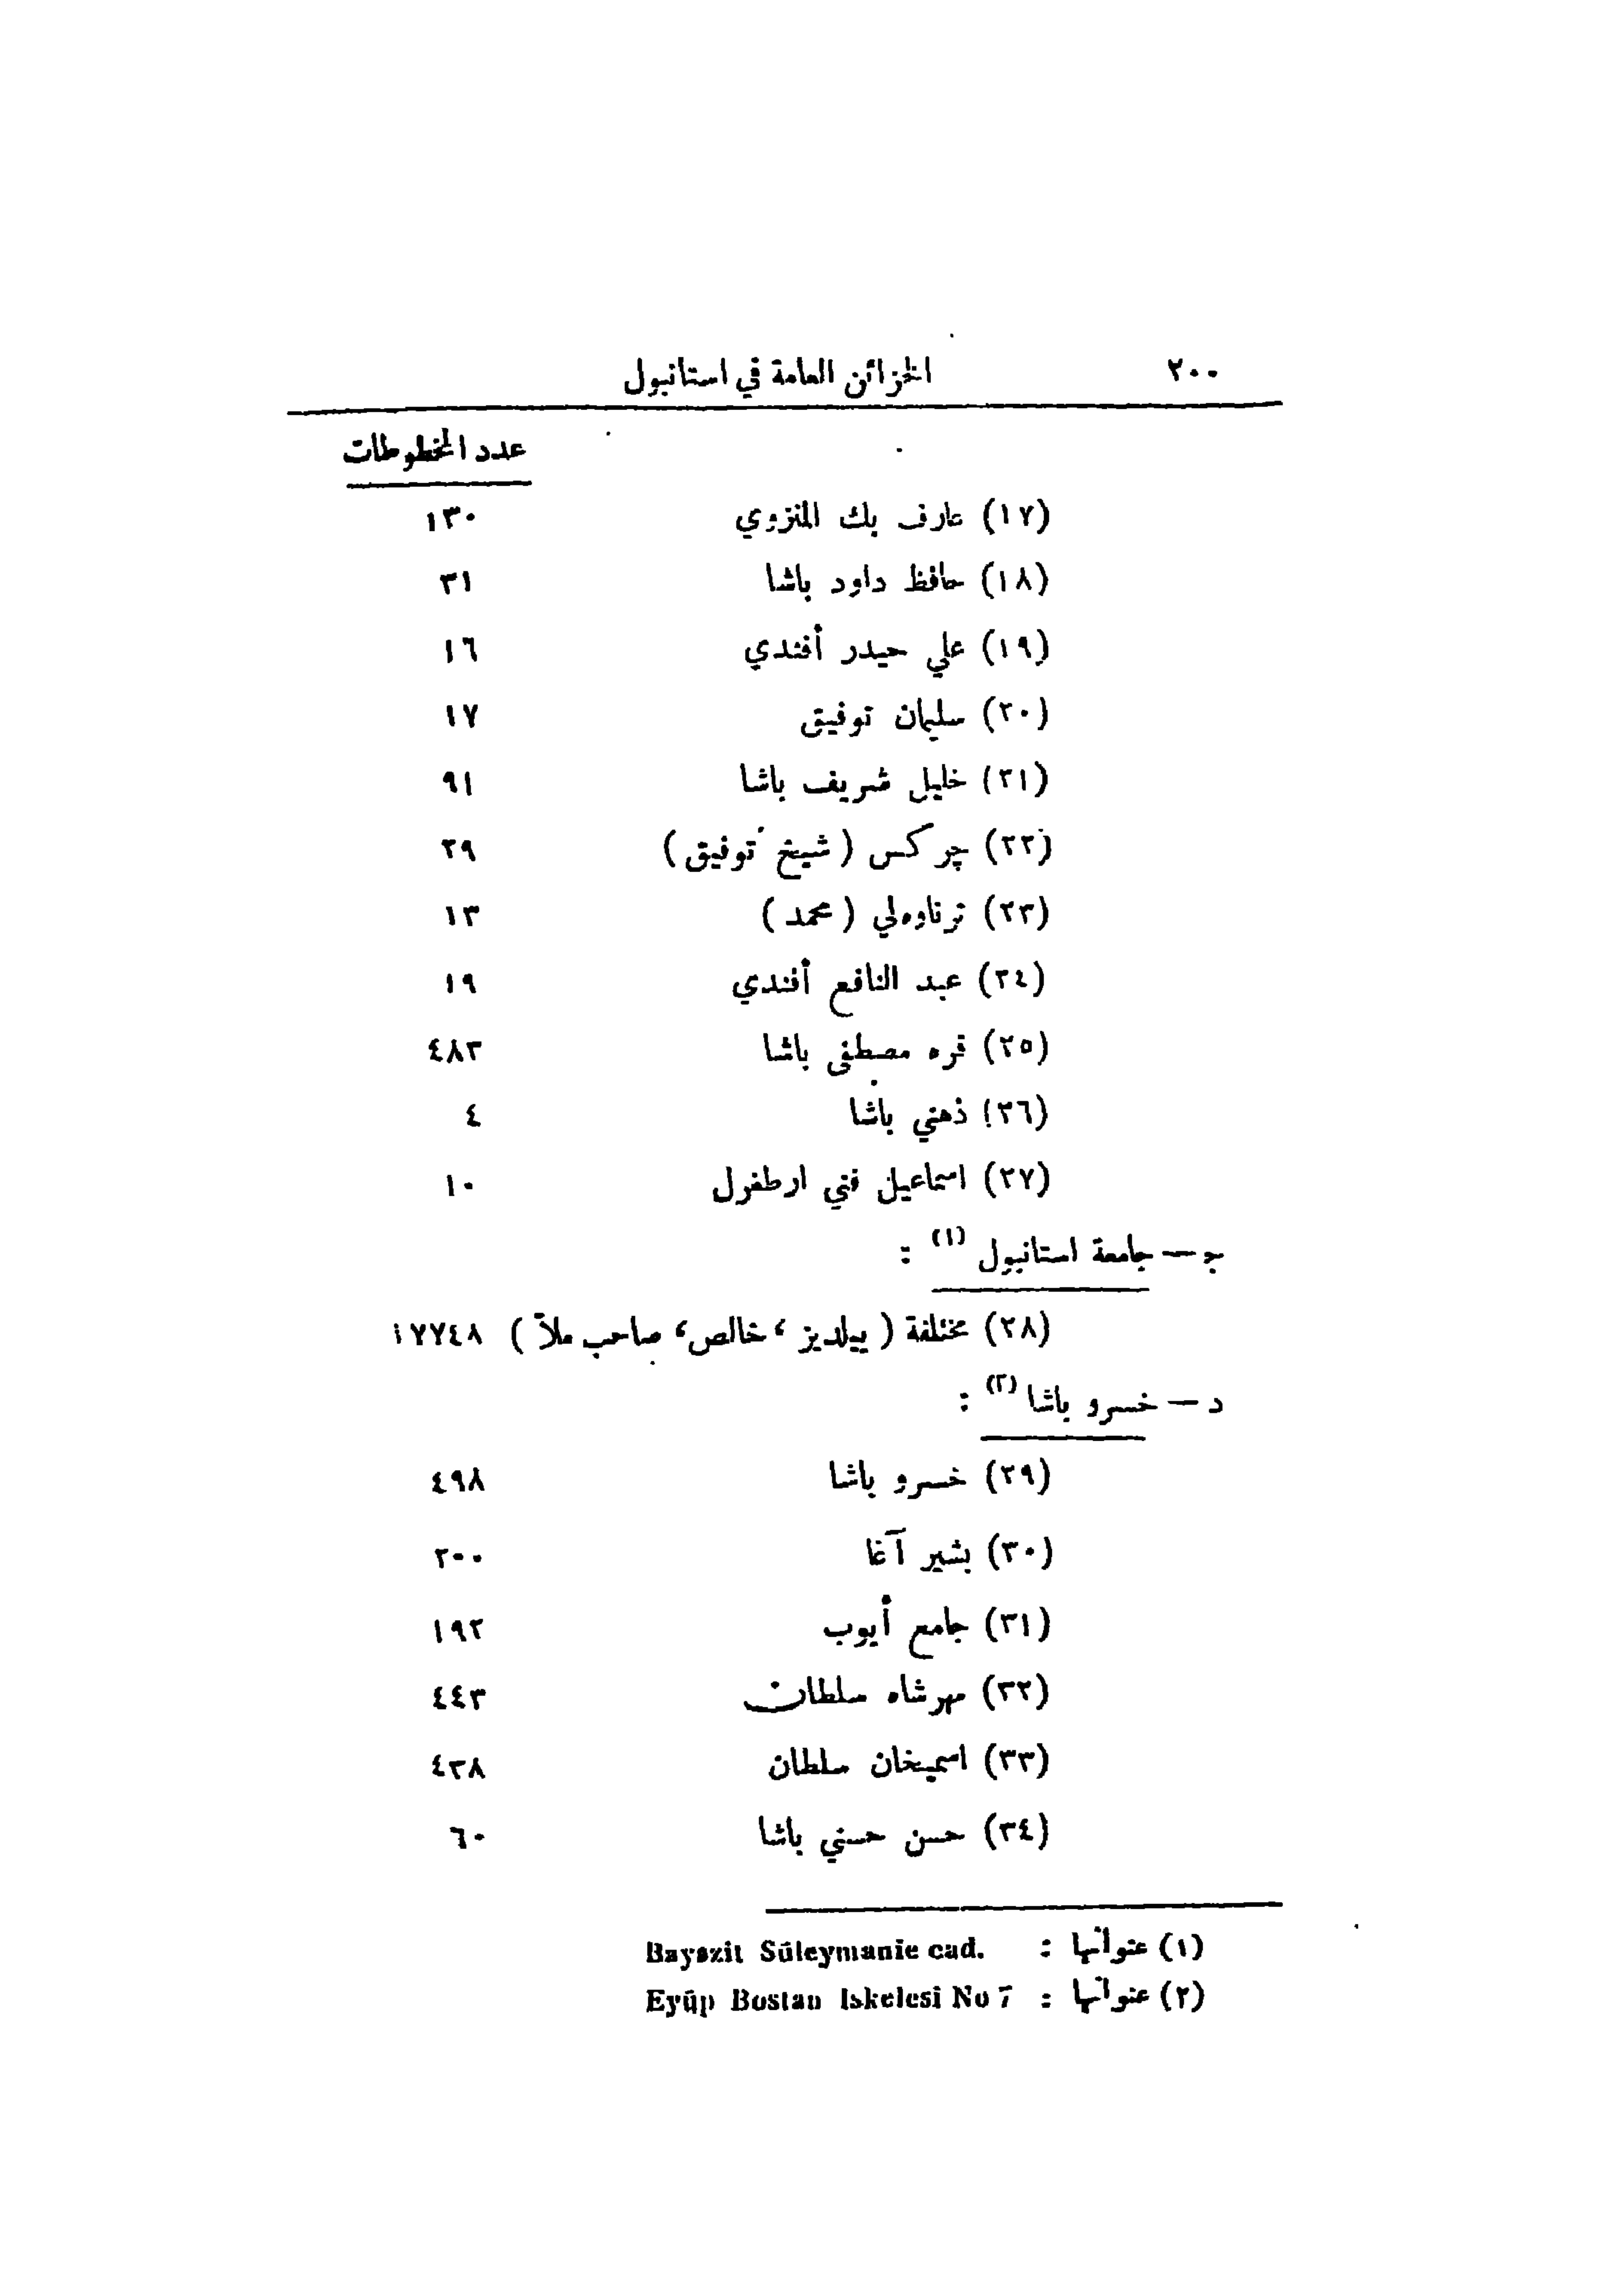 ٢٠٠ الخزائن العامة في استانبول
عدد المخطوطات
(١٧) عارف بك المنزوي ١٣٠
(١٨) حافظ داود باشا ٣١
(١٩) علي حيدر أفندي ١٦
(٢٠) سليمان توفيق ١٧
(٢١) خليل شريف باشا ٩١
(٢٢) چركس (شيخ توفيق) ٢٩
(٢٣) ترناوه لي (محمد) ١٣
(٢٤) عبد النافع أفندي ١٩
(٢٥) قره مصطفى باشا ٤٨٣
(٢٦) ذهني باشا ٤
(٢٧) اسماعيل فني ارطغرل ١٠
ج — جامعة استانبول (١) :
(٢٨) مختلفة (ييلديز، خالص، صاحب ملاّ) ١٧٧٤٨
د — خسرو باشا (٢) :
(٢٩) خسرو باشا ٤٩٨
(٣٠) بشير آغا ٢٠٠
(٣١) جامع أيوب ١٩٢
(٣٢) مهرشاه سلطان ٤٤٣
(٣٣) اسميخان سلطان ٤٣٨
(٣٤) حسن حسني باشا ٦٠
(١) عنوانها : Bayazit Süleymanie cad.
(٢) عنوانها : Eyüp Bostan Iskelesi No 7